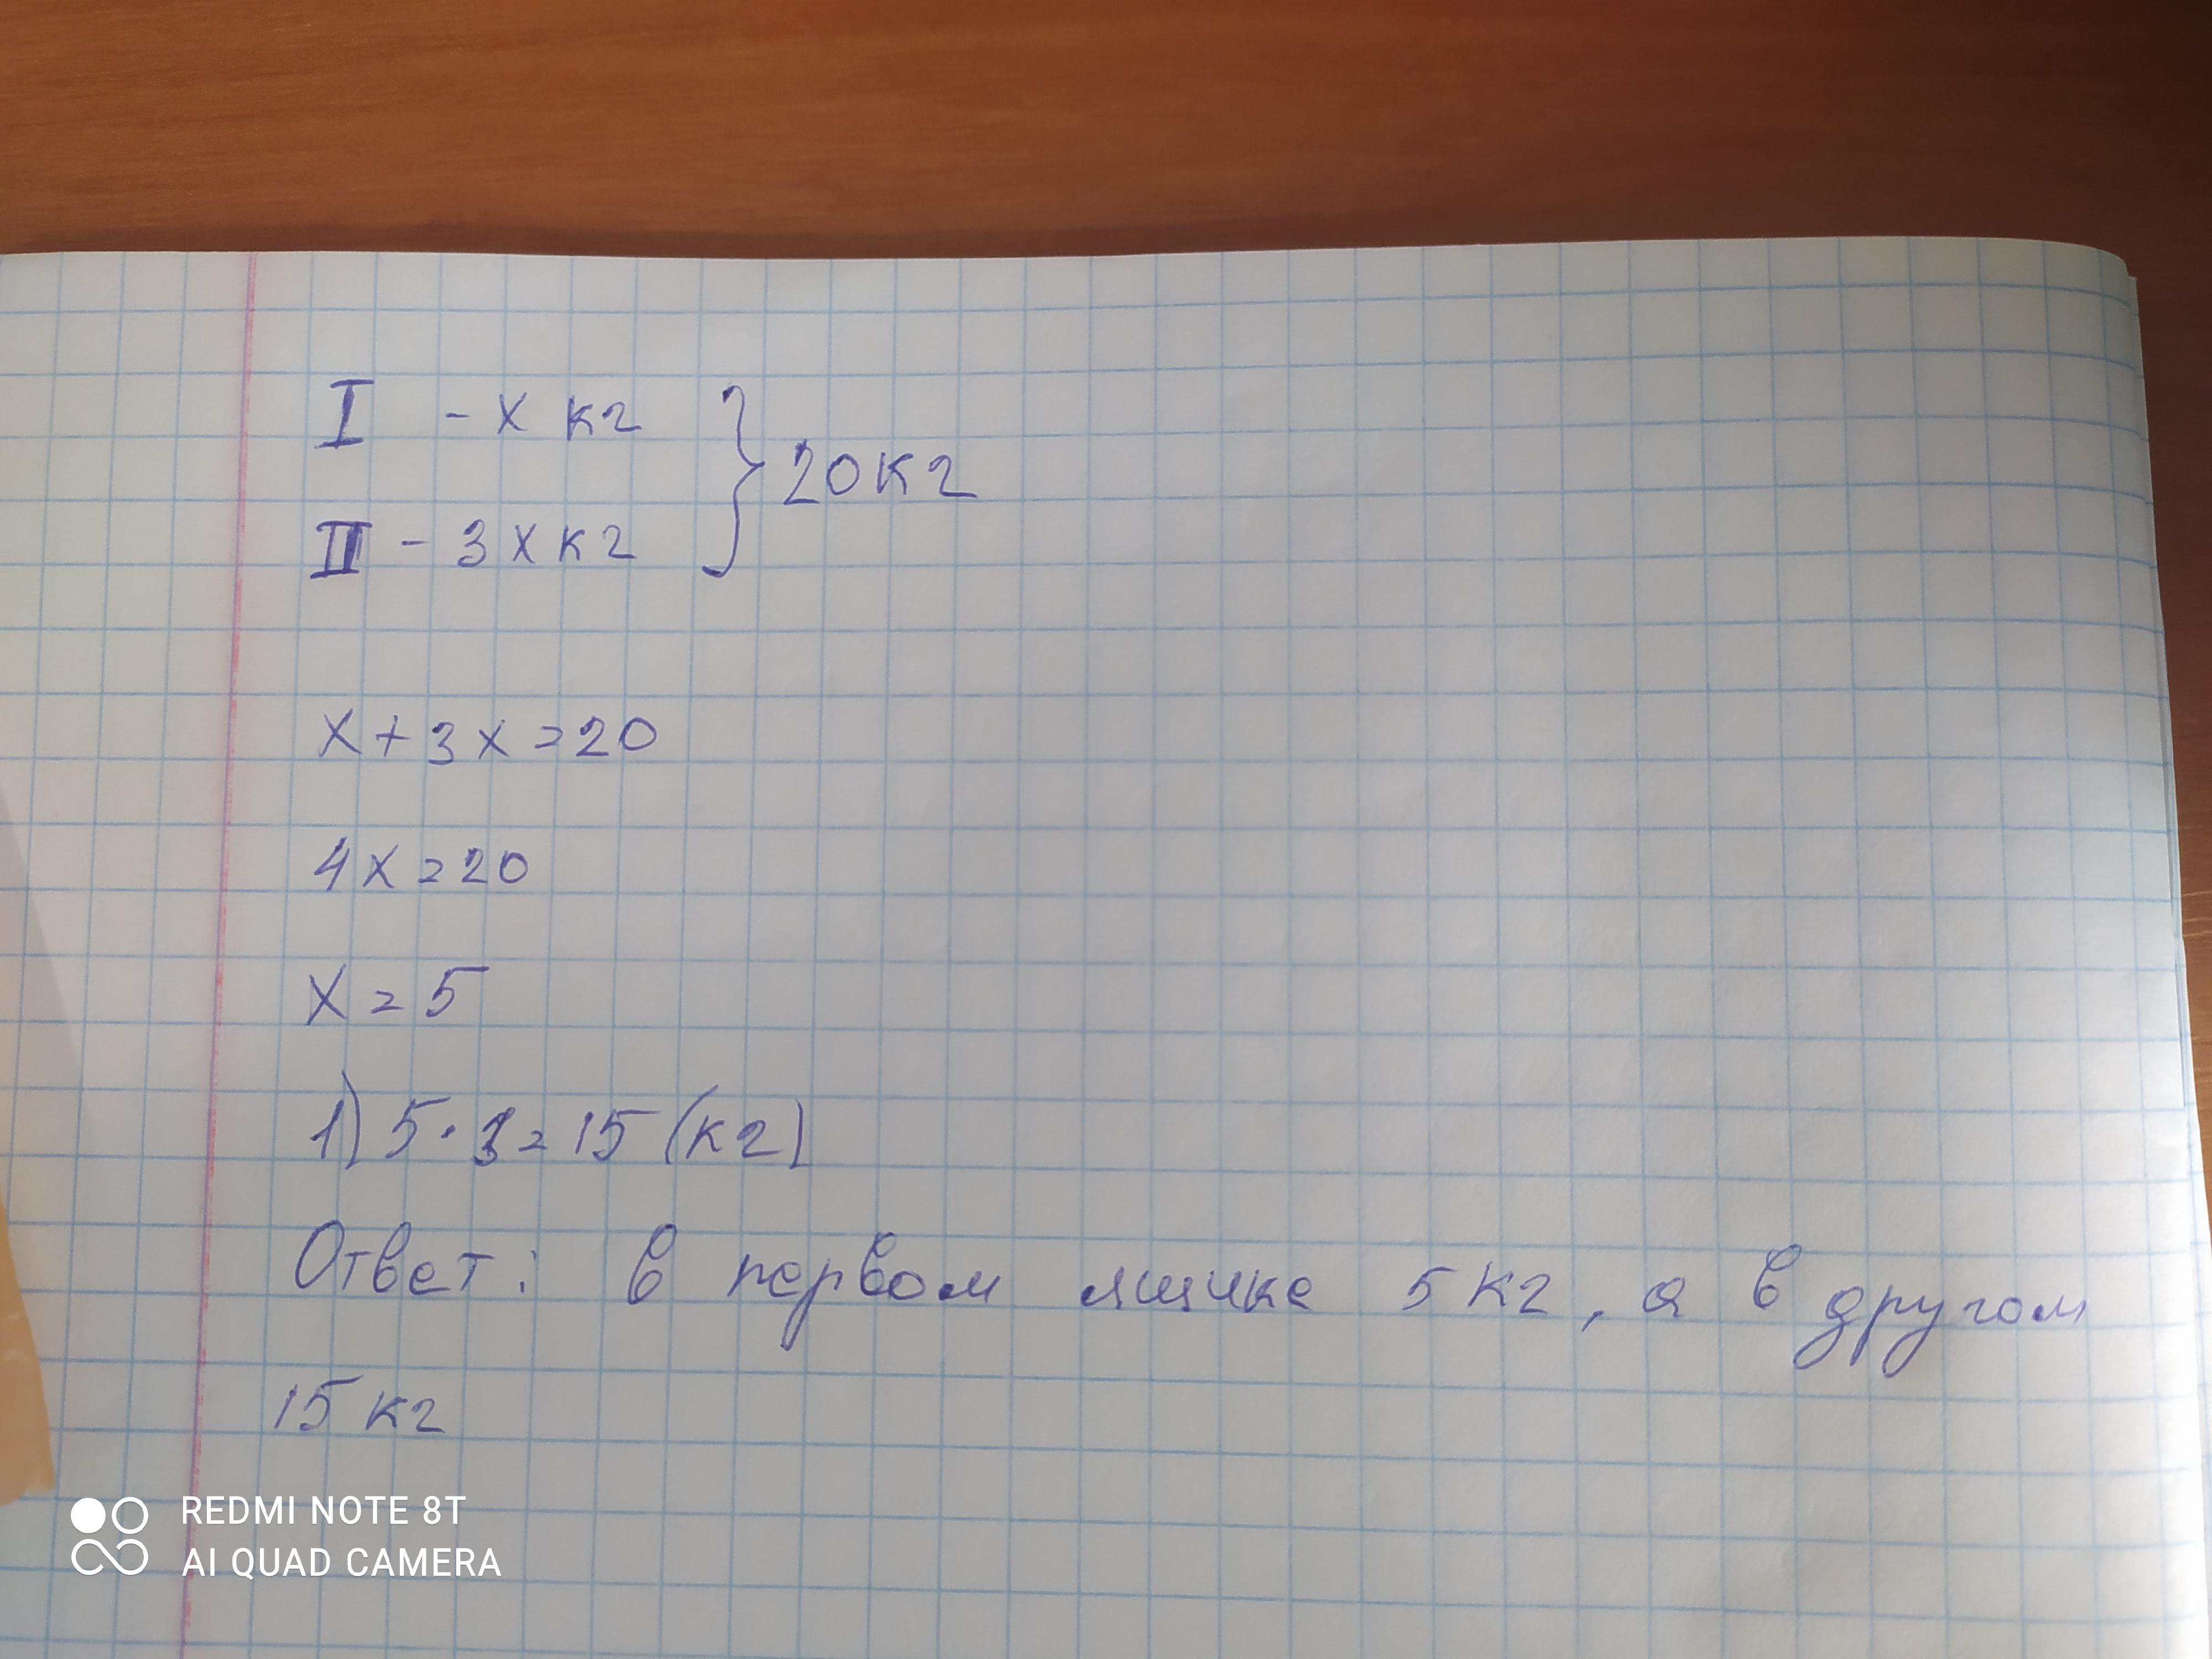 I - x кг
20 кг
II - 3x кг
x + 3x = 20
4x = 20
x = 5
1) 5 · 3 = 15 (кг)
Ответ: в первом ящике 5 кг, а в другом
15 кг
REDMI NOTE 8T
AI QUAD CAMERA